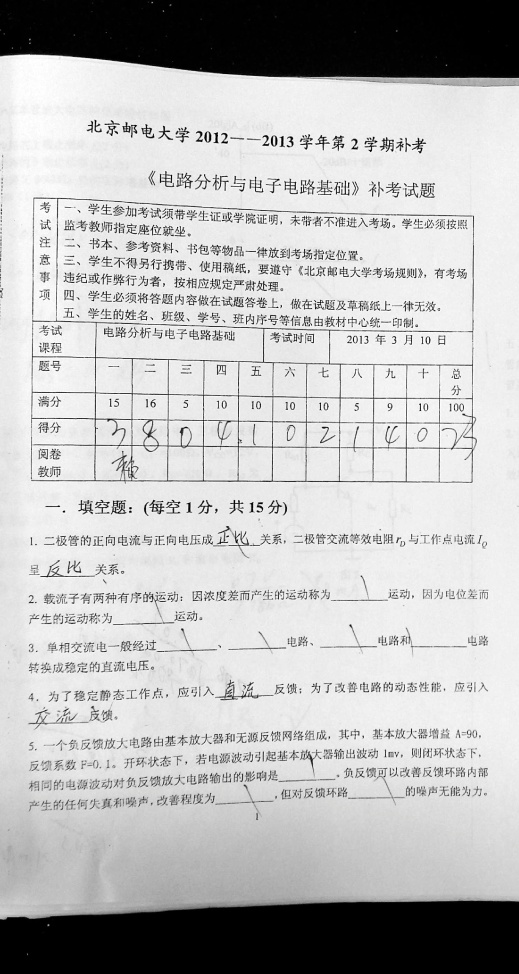 北京邮电大学 2012——2013 学年第 2 学期补考
《电路分析与电子电路基础》补考试题
考试注意事项
一、学生参加考试须带学生证或学院证明，未带者不准进入考场。学生必须按照
监考教师指定座位就坐。
二、书本、参考资料、书包等物品一律放到考场指定位置。
三、学生不得另行携带、使用稿纸，要遵守《北京邮电大学考场规则》，有考场
违纪或作弊行为者，按相应规定严肃处理。
四、学生必须将答题内容做在试题答卷上，做在试题及草稿纸上一律无效。
五、学生的姓名、班级、学号、班内序号等信息由教材中心统一印制。
考试课程 电路分析与电子电路基础 考试时间 2013 年 3 月 10 日
题号 一 二 三 四 五 六 七 八 九 十 总分
满分 15 16 5 10 10 10 10 5 9 10 100
得分 3 8 0 4 1 0 2 1 4 0 23
阅卷教师
一．填空题：(每空 1 分，共 15 分)
1. 二极管的正向电流与正向电压成 正比 关系，二极管交流等效电阻 r_D 与工作点电流 I_Q
呈 反比 关系。
2. 载流子有两种有序的运动：因浓度差而产生的运动称为________运动，因为电位差而
产生的运动称为________运动。
3. 单相交流电一般经过________、________电路、________电路和________电路
转换成稳定的直流电压。
4. 为了稳定静态工作点，应引入 直流 反馈；为了改善电路的动态性能，应引入
交流 反馈。
5. 一个负反馈放大电路由基本放大器和无源反馈网络组成，其中，基本放大器增益 A=90，
反馈系数 F=0.1。开环状态下，若电源波动引起基本放大器输出波动 1mv，则闭环状态下，
相同的电源波动对负反馈放大电路输出的影响是________。负反馈可以改善反馈环路内部
产生的任何失真和噪声，改善程度为________，但对反馈环路________的噪声无能为力。
1